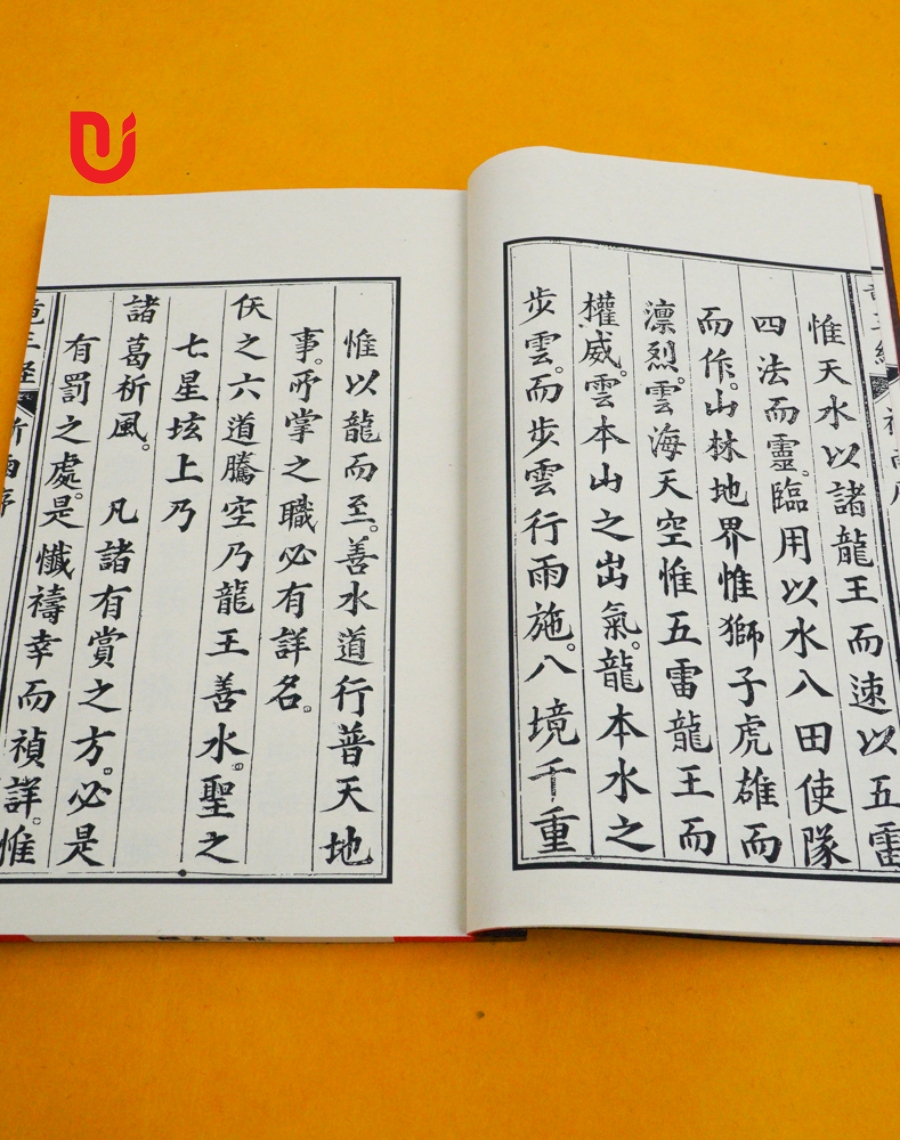 惟天水以諸龍王而速以五雷
四法而靈。臨用以水八田使隊
而作。山林地界惟獅子虎雄而
凛烈。雲海天空惟五雷龍王而
權威。雲本山之出氣。龍本水之
步雲。而步雲行雨施。八境千重
惟以龍而至。善水道行普天地
事。所掌之職必有詳名。
仸之六道騰空乃龍王善水。聖之
七星垓上乃
諸葛祈風。 凡諸有賞之方。必是
有罰之處。是懺禱幸而禎詳。惟
龍王经 祈雨序